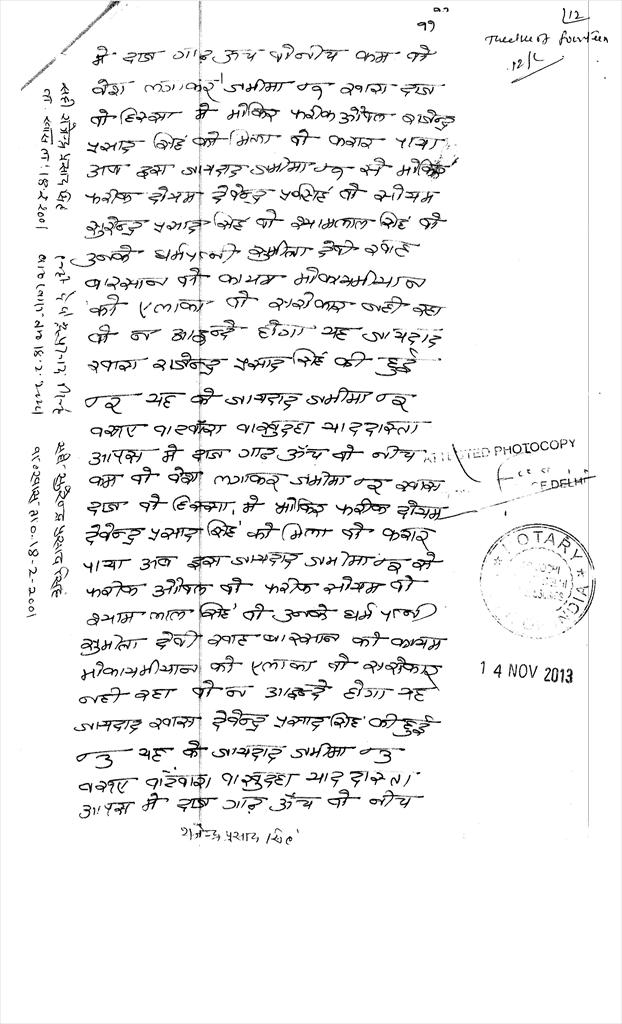 ११
12
Twelve of fourteen
12/
में दाज गाढ़ ऊँच वो नीच कम वो
वेश लगाकर जमीमा न१ खास दाज
वो हिस्सा में मोकिर फरीक औवल राजेन्द्र
प्रसाद सिंह को मिला वो करार पाया
अब इस जायदाद जमीमा न१ से मोकिर
फरीक दोयम देवेन्द्र प्र० सिंह वो सोयम
सुरेन्द्र प्रसाद सिंह वो श्यामलाल सिंह वो
उनके धर्मपत्नी सुमिला देवी खाह
वारसान वो कायम मोकायमीयान
को एलाका वो सरोकार नही रहा
वो न आइन्दे होगा यह जायदाद
खास राजेन्द्र प्रसाद सिंह की हुई
न२ यह के जायदाद जमीमा न२
बजरए बाटवारा याददास्ता
आपस में दाज गाढ़ ऊँच वो नीच
कम वो वेश लगाकर जमीमा न२ खास
दाज वो हिस्सा में मोकिर फरीक दोयम
देवेन्द्र प्रसाद सिंह को मिला वो करार
पाया अब इस जायदाद जमीमा न२ से
फरीक औवल वो फरीक सोयम वो
श्याम लाल सिंह वो उनके धर्म पत्नी
सुमीला देवी खाह वारसान को कायम
मोकायमीयान को एलाका वो सरोकार
नही रहा वो न आइन्दे होगा यह
जायदाद खास देवेन्द्र प्रसाद सिंह की हुई
न३ यह के जायदाद जमीमा न३
बजरए बाटवारा याददास्ता
आपस में दाज गाढ़ ऊँच वो नीच
राजेन्द्र प्रसाद सिंह
सही राजेन्द्र प्रसाद सिंह
ता: 18.2.2001
देवेन्द्र प्रसाद सिंह
18.2.2001
सही सुरेन्द्र प्रसाद सिंह
18-2-2001
ATTESTED PHOTOCOPY
DELHI
NOTARY
14 NOV 2013